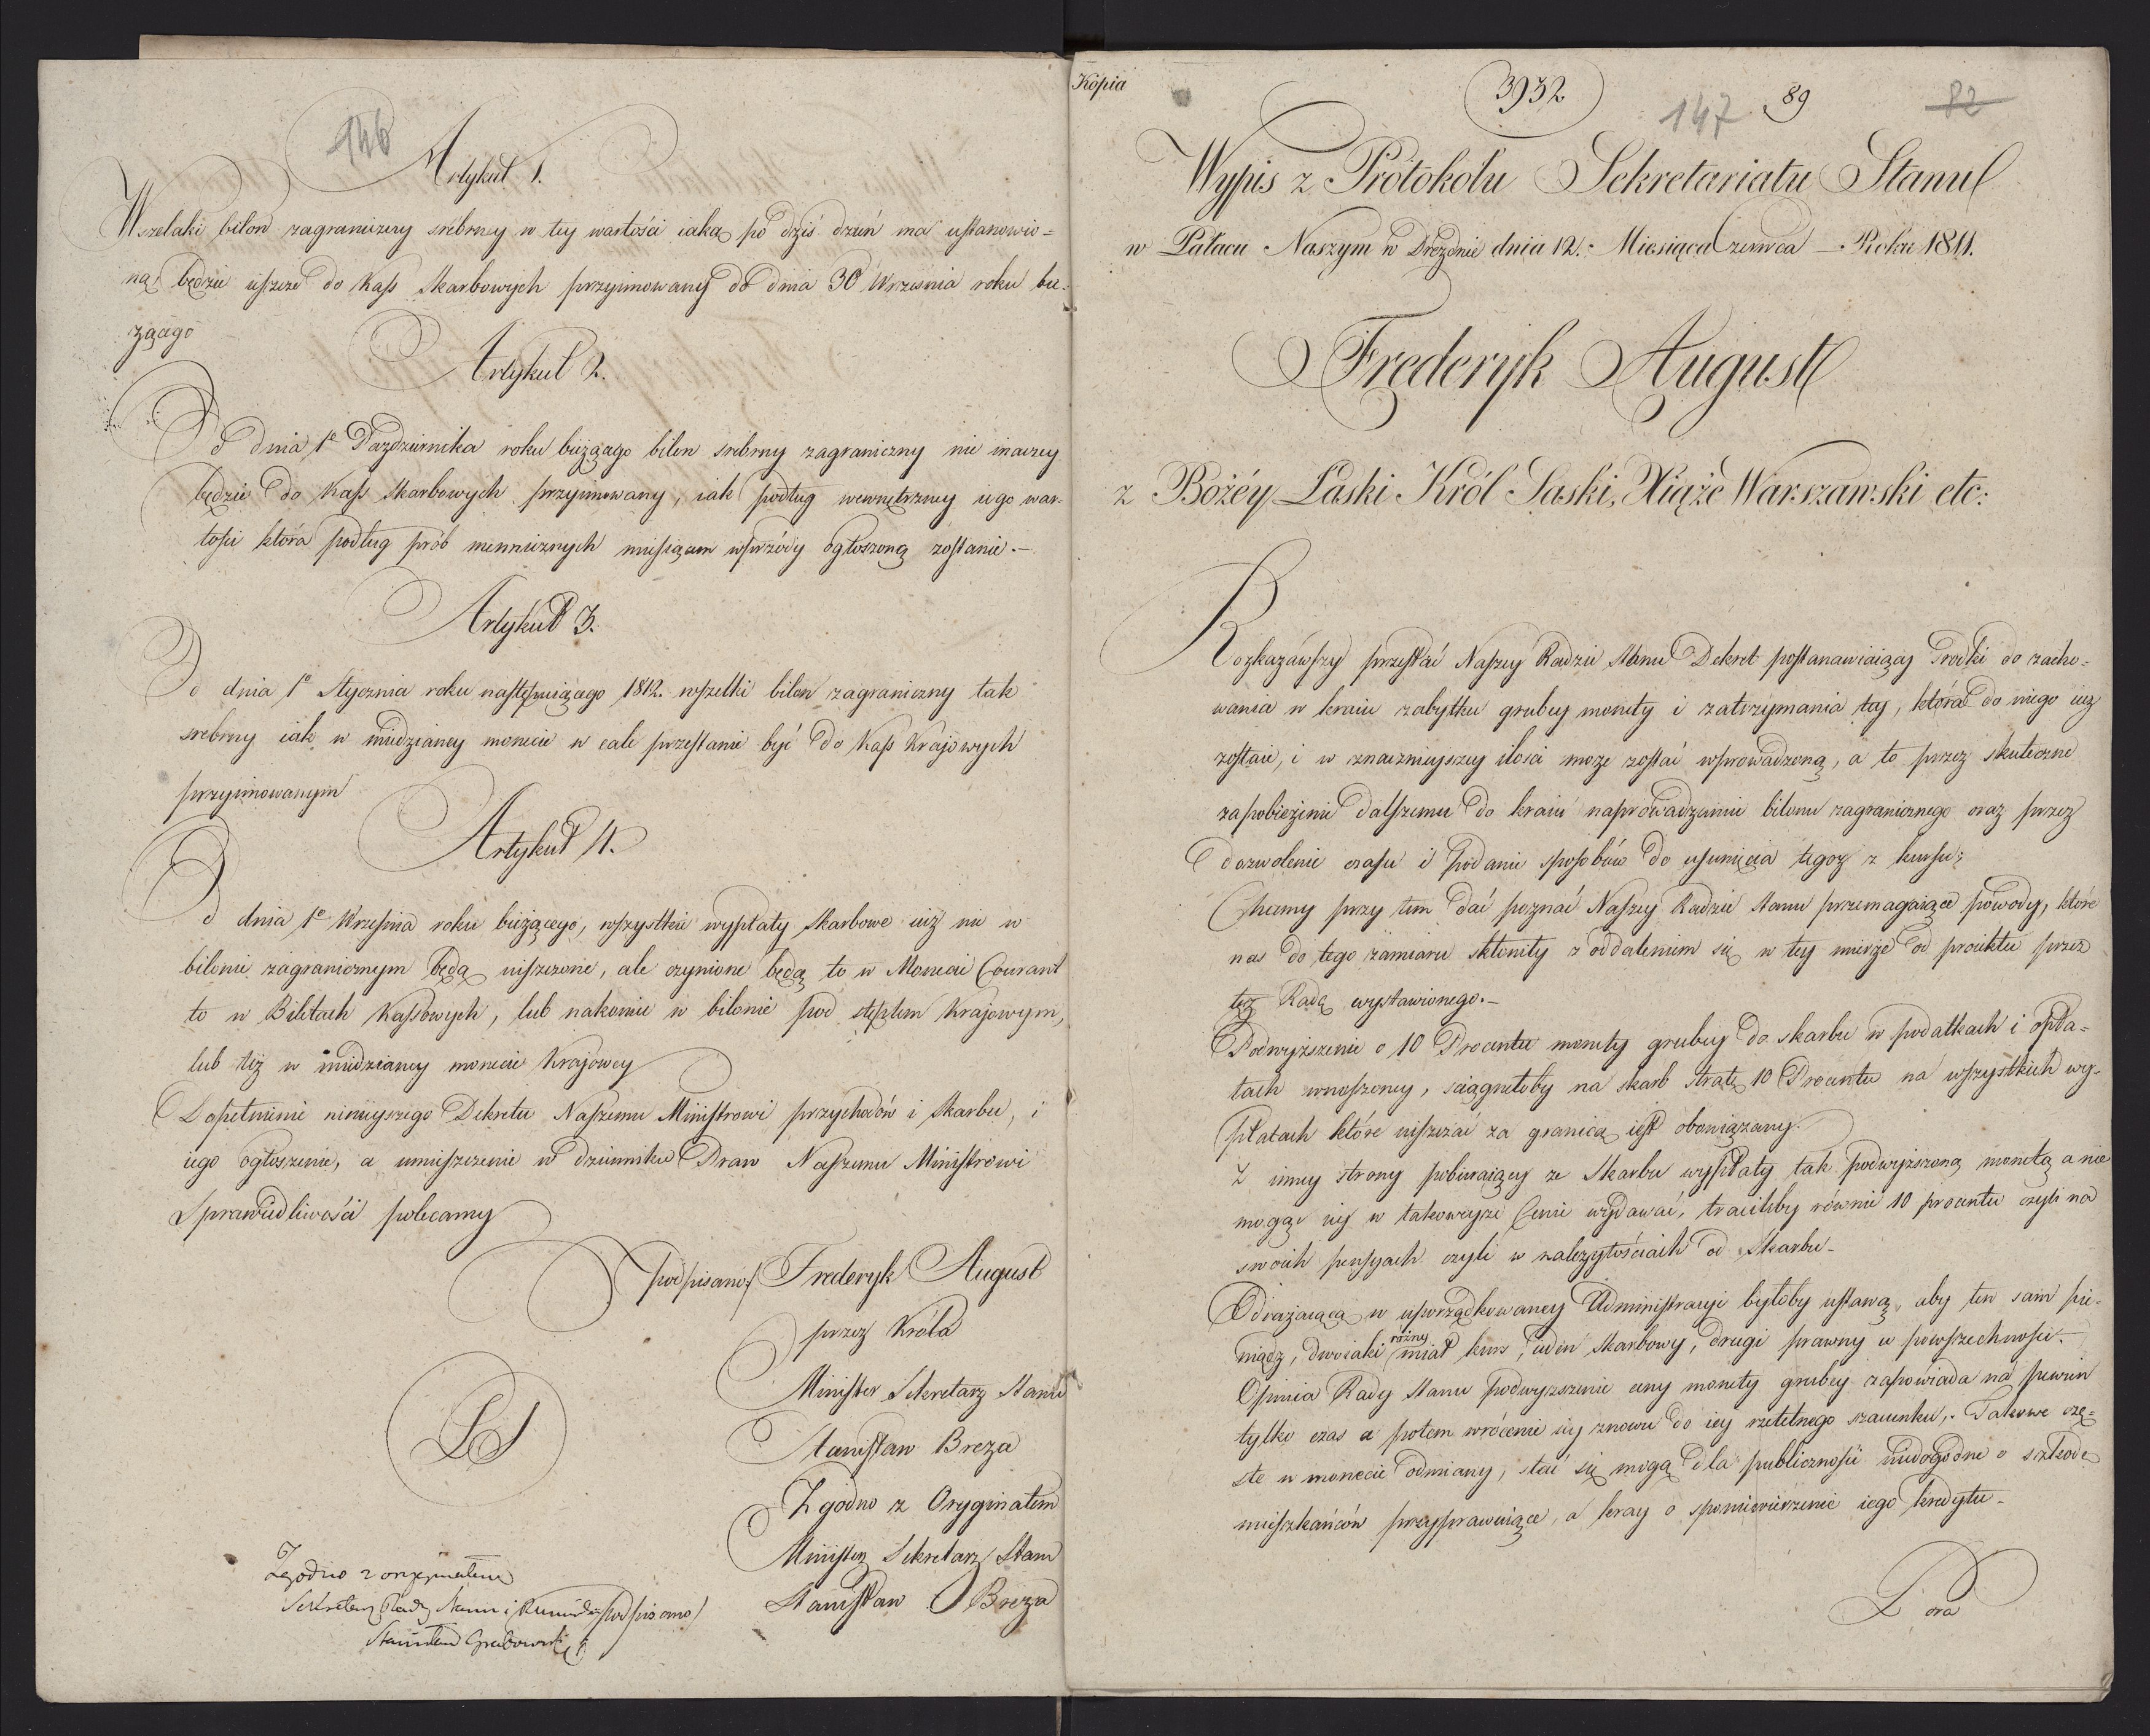 146
Artykuł 1.
Wszelaki bilon zagraniczny srebrny w tey wartości iaką po dziś dzień ma ustanowio=
ną będzie ieszcze do Kass Skarbowych przyimowany do dnia 30 Września roku bie=
żącego
Artykuł 2.
Od dnia 1o Października roku bieżącego bilon srebrny zagraniczny nie inaczey
będzie do Kass Skarbowych przyimowany, iak podług wewnętrzney iego war-
tości która podług prób menniczych miesiącem wprzódy ogłoszoną zostanie.-
Artykuł 3.
Od dnia 1o Stycznia roku następuiącego 1812. wszelki bilon zagraniczny tak
srebrny iak w miedzianey monecie w cale przestanie być do Kass Krajowych
przyimowanym
Artykuł 4.
Od dnia 1o Września roku bieżącego, wszystkie wypłaty Skarbowe iuż nie w
bilonie zagranicznym będą uiszczone, ale czynione będą to w Monecie Courant
to w Biletach Kassowych, lub nakoniec w bilonie pod stęplem Krajowym,
lub też w miedzianey monecie Krajowey
Dopełnienie ninieyszego Dekretu Naszemu Ministrowi przychodów i Skarbu, i
iego ogłoszenie, a umieszczenie w dzienniku Praw Naszemu Ministrowi
Sprawiedliwości polecamy
podpisano/ Frederyk August
przez Króla
Minister Sekretarz Stanu
Stanisław Breza
LS
Zgodno z Oryginałem
Minister Sekretarz Stanu
Stanisław Breza
Zgodno z oryginałem
Sekretarz Rady Stanu i podpisano/
Stanisław Grabowski
Kopia
3932
147
89
82
Wypis z Protokołu Sekretariatu Stanu
w Pałacu Naszym w Dreznie dnia 12. Miesiąca Czerwca - Roku 1811.
Frederyk August
z Bożéy Łaski Król Saski, Xiąże Warszawski etc:
Rozkazawszy przesłać Naszey Radzie Stanu Dekret postanawiaiący Srodki do zacho=
wania w kraiu zabytku grubey monety i zatrzymania tey, która do niego iuż
zostaie, i w znacznieyszey ilości może zostać wprowadzoną, a to przez skuteczne
zapobieżenie dalszemu do kraiu naprowadzaniu bilonu zagranicznego oraz przez
dozwolenie czasu i podanie sposobów do usunięcia tegoż z kursu;
Chcemy przy tem dać poznać Naszey Radzie Stanu przemagaiące powody, które
nas do tego zamiaru skłoniły z oddaleniem się w tey mierze od proiektu przez
tęż Radę wystawionego.-
Podwyższenie o 10 Procentu monety grubey do skarbu w podatkach i opła=
tach wnoszoney, sciągnęłoby na skarb stratę 10 Procentu na wszystkich wy-
płatach które uiszczać za granicą iest obowiązany.
Z inney strony pobieraiący ze Skarbu wypłaty tak podwyższoną monetą a nie
mogąc iey w takowéyże Cenie wydawać, traciliby równie 10 procentu czyli na
swoich pensyach czyli w należytościach od Skarbu-
Odrażaiącą w uporządkowaney Administracyi byłoby ustawą, aby ten sam pie-
niądz, dwoiaki różny miał kurs, ieden Skarbowy, drugi prawny w powszechności.-
Opinia Rady Stanu podwyższenie ceny monety grubey zapowiada na pewien
tylko czas a potem wrócenie iey znowu do iey rzetelnego szacunku,. Takowe czę=
ste w monecie odmiany, stać się mogą dla publiczności niedogodne o szkodę
mieszkańców przyprawuiące, a kray o sponiewierzenie iego kredytu-